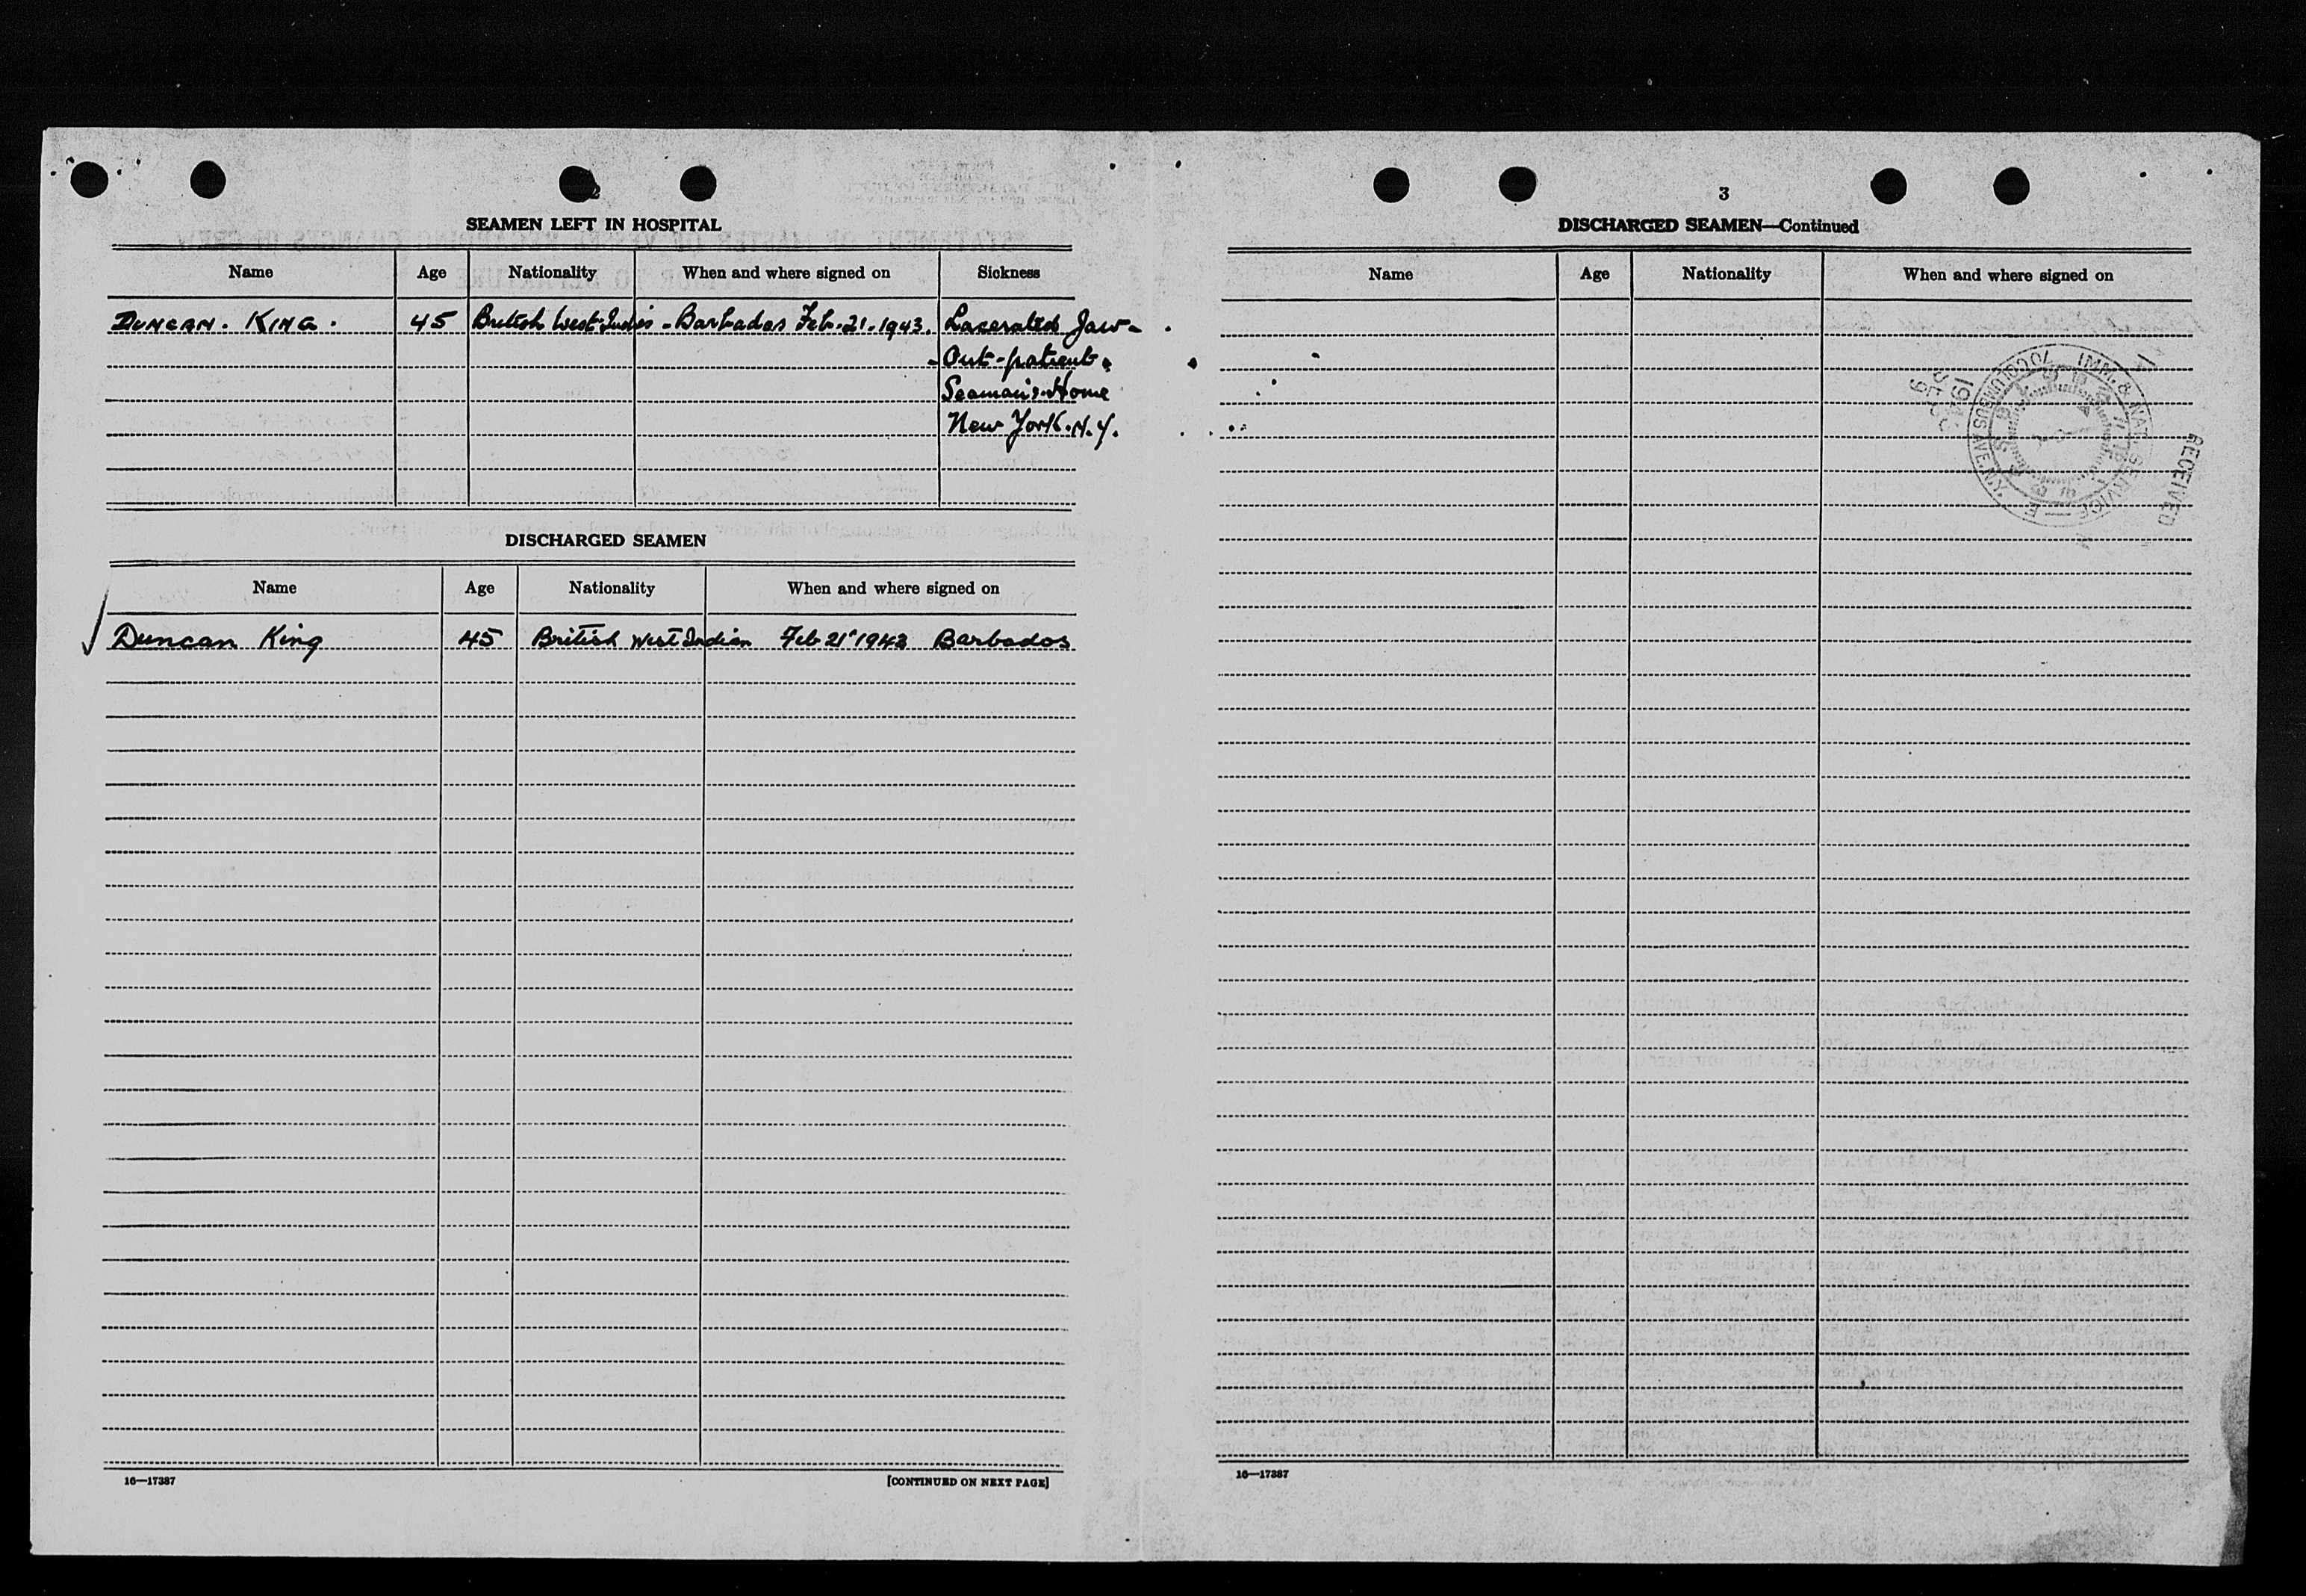 2
SEAMEN LEFT IN HOSPITAL
Name Age Nationality When and where signed on Sickness
DUNCAN. KING. 45 British West Indies - Barbados Feb. 21. 1943. Lacerated Jaw -
- Out-patient.
Seaman's Home
New York. N.Y.
DISCHARGED SEAMEN
Name Age Nationality When and where signed on
Duncan King 45 British West Indian Feb 21' 1943 Barbados
16—17387 [CONTINUED ON NEXT PAGE]
3
DISCHARGED SEAMEN—Continued
Name Age Nationality When and where signed on
IMM. & NAT. SERVICE
70 COLUMBUS AVE. N.Y.
RECEIVED
16—17387